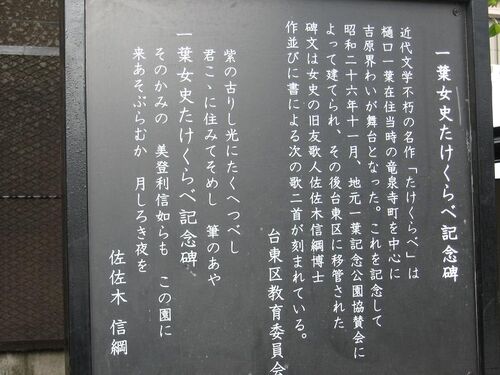 一葉女史たけくらべ記念碑
近代文学不朽の名作「たけくらべ」は
樋口一葉在住当時の竜泉寺町を中心に
吉原界わいが舞台となった。これを記念して
昭和二十六年十一月、地元一葉記念公園協賛会に
よって建てられ、その後台東区に移管された
碑文は女史の旧友歌人佐佐木信綱博士
作並びに書による次の歌二首が刻まれている。
台東区教育委員会
紫の古りし光にたくへつべし
君こゝに住みてそめし 筆のあや
一葉女史たけくらべ記念碑
そのかみの 美登利信如らも この園に
来あそぶらむか 月しろき夜を
佐佐木 信綱